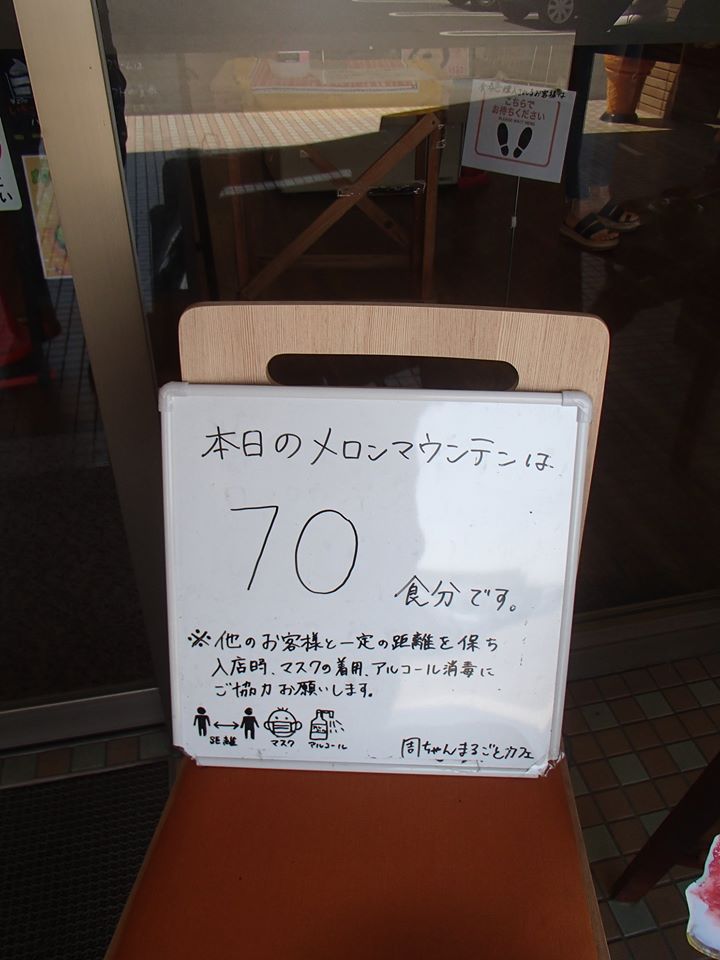 こちらで
お待ちください
PLEASE WAIT HERE
本日のメロンマウンテンは
70
食分です。
※他のお客様と一定の距離を保ち
入店時、マスクの着用、アルコール消毒に
ご協力お願いします。
距離 マスク アルコール
周ちゃんまるごとカフェ